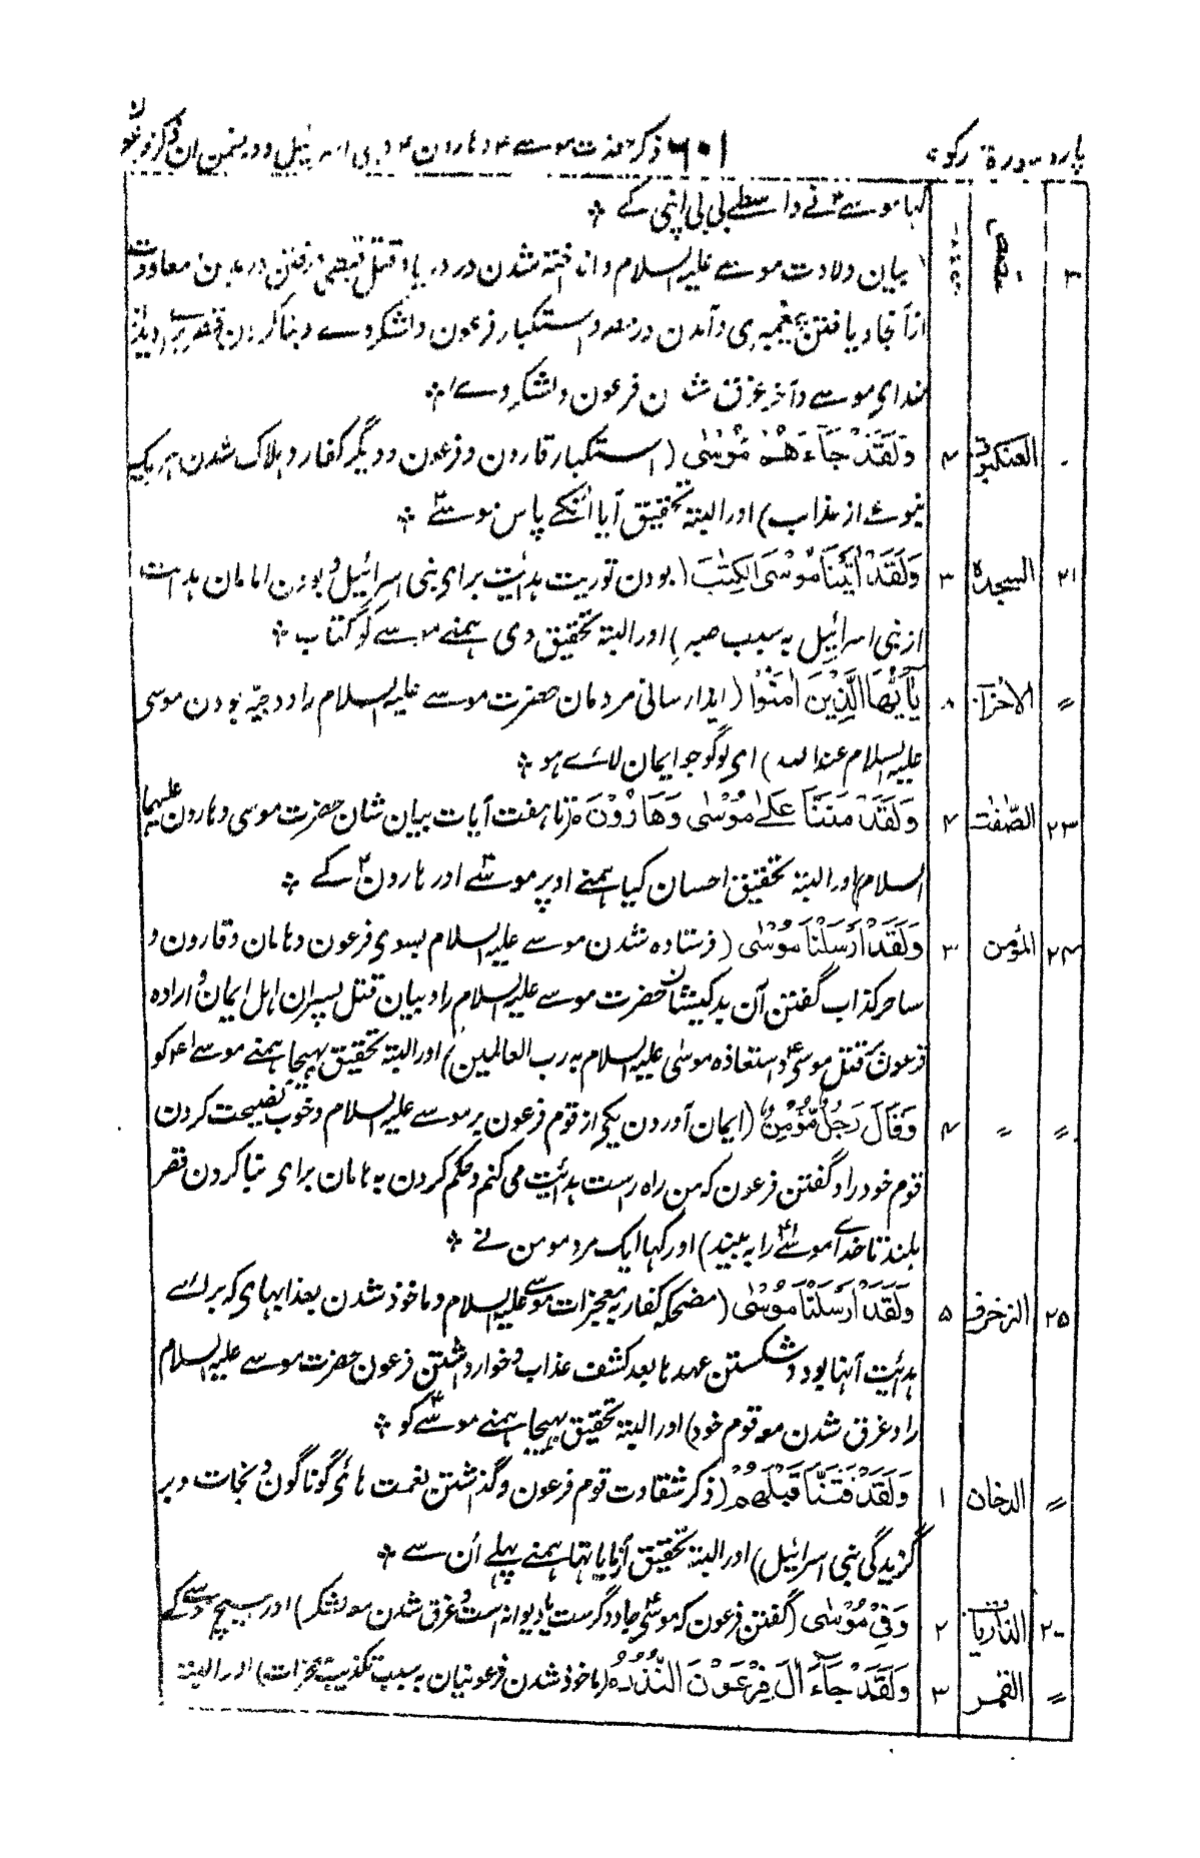 پارہ سورۃ رکوع ۶۰۱ ذکر حضرت موسے ع و ہارون ع و بنی اسرائیل و در ضمن ان ذکر فرعون
کہا موسے ع نے واسطے بی بی اپنی کے ؞
۲ قصص بیان ولادت موسے علیہ السلام و انداختہ شدن در دریا و قتل قبطی و رفتن در مدین معاودت
از آنجا و یافتن پیغمبری و آمدن در مصر و استکبار فرعون و لشکر وے و بنا کردن قصر برای دیدن
خدای موسے و آخر غرق شدن فرعون و لشکر وے ؞
العنکبوت ۴ وَلَقَدْ جَآءَهُمْ مُّوْسٰی (استکبار قارون و فرعون و دیگر کفار و ہلاک شدن ہر یک
بنوعے از عذاب) اور البتہ تحقیق آیا انکے پاس موسےٰ ؞
۲۱ السجدہ ۳ وَلَقَدْ اٰتَیْنَا مُوْسَی الْکِتٰبَ (بودن توریت ہدایت برای بنی اسرائیل و بودن امامان ہدایت
از بنی اسرائیل بہ سبب صبر) اور البتہ تحقیق دی ہمنے موسے کو کتاب ؞
〃 الاحزاب ۸ یٰٓاَیُّهَا الَّذِیْنَ اٰمَنُوْا (ایذا رسانی مردمان حضرت موسے علیہ السلام را و وجیہ بودن موسی
علیہ السلام عند اللہ) ای لوگو جو ایمان لائے ہو ؞
۲۳ الصّٰفّٰت ۴ وَلَقَدْ مَنَنَّا عَلٰی مُوْسٰی وَهَارُوْنَ تا ہفت آیات بیان شان حضرت موسی و ہارون علیہما
السلام) اور البتہ تحقیق احسان کیا ہمنے اوپر موسےٰ اور ہارون کے ؞
۲۴ المؤمن ۳ وَلَقَدْ اَرْسَلْنَا مُوْسٰی (فرستادہ شدن موسے علیہ السلام بسوی فرعون و ہامان و قارون و
ساحر کذاب گفتن آن بدکیشان حضرت موسے علیہ السلام را و بیان قتل پسران اہل ایمان و ارادہ
فرعون بقتل موسی و استعاذہ موسٰی علیہ السلام بہ رب العالمین) اور البتہ تحقیق بھیجا ہمنے موسے ع کو
〃 〃 ۴ وَقَالَ رَجُلٌ مُّؤْمِنٌ (ایمان آوردن یکی از قوم فرعون بر موسے علیہ السلام و خوب نصیحت کردن
قوم خود را و گفتن فرعون کہ من راہ راست ہدایت می کنم و حکم کردن بہ ہامان برای بنا کردن قصر
بلند تا خدائے موسےٰ را بہ بیند) اور کہا ایک مرد مومن نے ؞
۲۵ الزخرف ۵ وَلَقَدْ اَرْسَلْنَا مُوْسٰی (مضحکہ کفار بہ معجزات موسے علیہ السلام و ماخوذ شدن بعذابہای کہ برائے
ہدایت آنہا بود و شکستن عہد ہا بعد کشف عذاب و خوار داشتن فرعون حضرت موسے علیہ السلام
را و غرق شدن معہ قوم خود) اور البتہ تحقیق بھیجا ہمنے موسےٰ کو ؞
〃 الدخان ۱ وَلَقَدْ فَتَنَّا قَبْلَهُمْ (ذکر شقاوت قوم فرعون و گذاشتن نعمت ہائے گوناگون و نجات و بر
گزیدگی بنی اسرائیل) اور البتہ تحقیق آزمایا تھا ہمنے پہلے اُن سے ؞
الذاریات ۲ وَفِیْ مُوْسٰی (گفتن فرعون کہ موسٰی جادوگرست یا دیوانہ است و غرق شدن معہ لشکر) اور بیچ موسے کے
〃 القمر ۳ وَلَقَدْ جَآءَ اٰلَ فِرْعَوْنَ النُّذُرُ (ماخوذ شدن فرعونیان بہ سبب تکذیب معجزات) اور البتہ